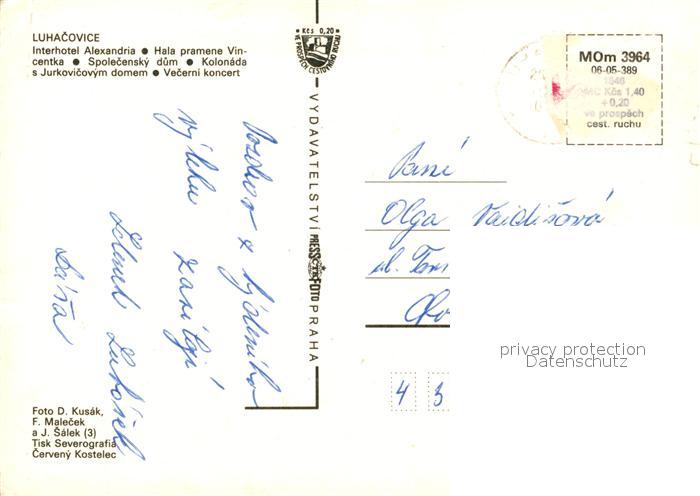 LUHAČOVICE
Interhotel Alexandria ● Hala pramene Vin-
centka ● Společenský dům ● Kolonáda
s Jurkovičovým domem ● Večerní koncert
Kčs 0,20
VE PROSPĚCH CESTOVNÍHO RUCHU
MOm 3964
06-05-389
1846
MC Kčs 1,40
+0,20
ve prospěch
cest. ruchu
VYDAVATELSTVÍ PRESSFOTO PRAHA
Pozdrav z týdenního
výletu zasílají
Zdena
Báťa
Paní
Olga
ul.
4 3
privacy protection
Datenschutz
Foto D. Kusák,
F. Maleček
a J. Šálek (3)
Tisk Severografia
Červený Kostelec